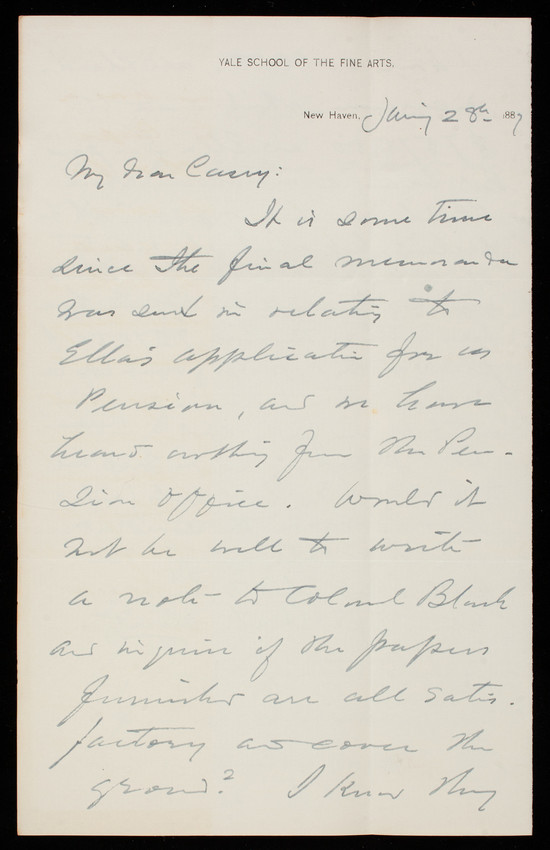 YALE SCHOOL OF THE FINE ARTS.
New Haven, Jany 28th 1887
My dear Casey:
It is some time
since the final memoranda
was sent in relating to
Ella's application for a
Pension, and we have
heard nothing from the Pen-
sion Office. Would it
not be well to write
a note to Colonel Black
and inquire if the papers
furnished are all satis-
factory and cover the
ground? I know they